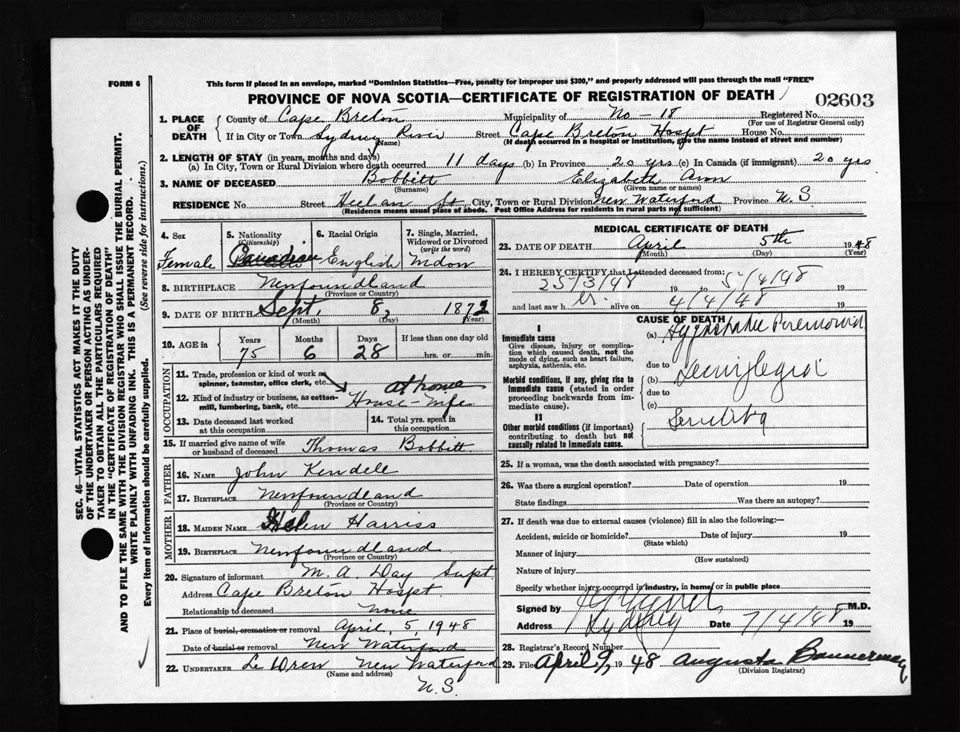 FORM 6
This form if placed in an envelope, marked "Dominion Statistics—Free, penalty for improper use $300," and properly addressed will pass through the mail "FREE"
PROVINCE OF NOVA SCOTIA—CERTIFICATE OF REGISTRATION OF DEATH
02603
1. PLACE OF DEATH
County of Cape Breton Municipality of No-18 Registered No.
(For use of Registrar General only)
If in City or Town Sydney River Street Cape Breton Hospt House No.
(Name) (If death occurred in a hospital or institution, give the name instead of street and number)
2. LENGTH OF STAY (in years, months and days)
(a) In City, Town or Rural Division where death occurred 11 days (b) In Province 20 yrs (c) In Canada (if immigrant) 20 yrs
3. NAME OF DECEASED Bobbitt Elizabeth Ann
(Surname) (Given name or names)
RESIDENCE No. Street St, City, Town or Rural Division New Waterford Province N.S.
(Residence means usual place of abode. Post Office Address for residents in rural parts not sufficient)
4. Sex
Female
5. Nationality
(Citizenship)
Canadian
6. Racial Origin
English
7. Single, Married, Widowed or Divorced
(write the word)
8. BIRTHPLACE Newfoundland
(Province or Country)
9. DATE OF BIRTH Sept. 8, 1872
(Month) (Day) (Year)
10. AGE in Years Months Days If less than one day old
75 6 28 hrs. or min.
OCCUPATION
11. Trade, profession or kind of work as spinner, teamster, office clerk, etc. at home
12. Kind of industry or business, as cotton-mill, lumbering, bank, etc. House-wife
13. Date deceased last worked at this occupation
14. Total yrs. spent in this occupation
15. If married give name of wife or husband of deceased Thomas Bobbitt
FATHER
16. NAME John Kendell
17. BIRTHPLACE Newfoundland
(Province or Country)
MOTHER
18. MAIDEN NAME Helen Harriss
19. BIRTHPLACE Newfoundland
(Province or Country)
20. Signature of informant M. A. Day Supt.
Address Cape Breton Hospt.
Relationship to deceased none
21. Place of burial, cremation or removal April, 5, 1948
Date of burial or removal New Waterford
22. UNDERTAKER New Waterford
(Name and address)
N.S.
MEDICAL CERTIFICATE OF DEATH
23. DATE OF DEATH April 5th 1948
(Month) (Day) (Year)
24. I HEREBY CERTIFY that I attended deceased from:
25/3/48 19 to 5/4/48 19
and last saw h er alive on 4/4/48 19
CAUSE OF DEATH
I
Immediate cause
Give disease, injury or complication which caused death, not the mode of dying, such as heart failure, asphyxia, asthenia, etc.
(a)
due to
Morbid conditions, if any, giving rise to immediate cause (stated in order proceeding backwards from immediate cause).
(b)
due to
(c)
II
Other morbid conditions (if important) contributing to death but not causally related to immediate cause.
25. If a woman, was the death associated with pregnancy?
26. Was there a surgical operation? Date of operation 19
State findings Was there an autopsy?
27. If death was due to external causes (violence) fill in also the following:—
Accident, suicide or homicide? Date of injury 19
(State which)
Manner of injury
(How sustained)
Nature of injury
Specify whether injury occurred in industry, in home, or in public place
Signed by M.D.
Address Sydney Date 7/4/48 19
28. Registrar's Record Number
29. Filed April 9, 1948 Augusta Bannerman
(Division Registrar)
SEC. 46—VITAL STATISTICS ACT MAKES IT THE DUTY
OF THE UNDERTAKER OR PERSON ACTING AS UNDER-
TAKER TO OBTAIN ALL THE PARTICULARS REQUIRED
IN THE "CERTIFICATE OF REGISTRATION OF DEATH"
AND TO FILE THE SAME WITH THE DIVISION REGISTRAR WHO SHALL ISSUE THE BURIAL PERMIT.
WRITE PLAINLY WITH UNFADING INK. THIS IS A PERMANENT RECORD.
Every item of information should be carefully supplied. (See reverse side for instructions.)